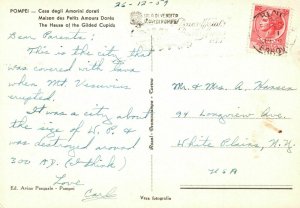 POMPEI — Casa degli Amorini dorati
Maison des Petits Amours Dorés
The House of the Gilded Cupids
26-12-59
Dear Parents:
This is the city that
was covered with lava
when Mt. Vesuvius
erupted.
It was a city about
the size of W. P. &
was destroyed around
300 A.D. (I think)
Love
Carl
Mr & Mrs A. Hansen
94 Longview Ave.
White Plains, N.Y.
USA
Ed. Artur Pasquale - Pompei
Vera fotografia